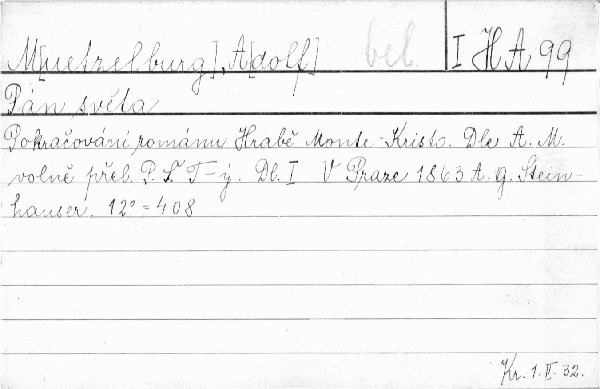 M[uetzelburg], A[dolf] bel. I H A 99
Pán světa
Pokračování románu Hrabě Monte-Kristo. Dle A. M.
volně přel. P. Š. T-ý. Dl. I V Praze 1863 A. G. Stein-
hauser. 12° = 408
Kr. 1. V. 32.